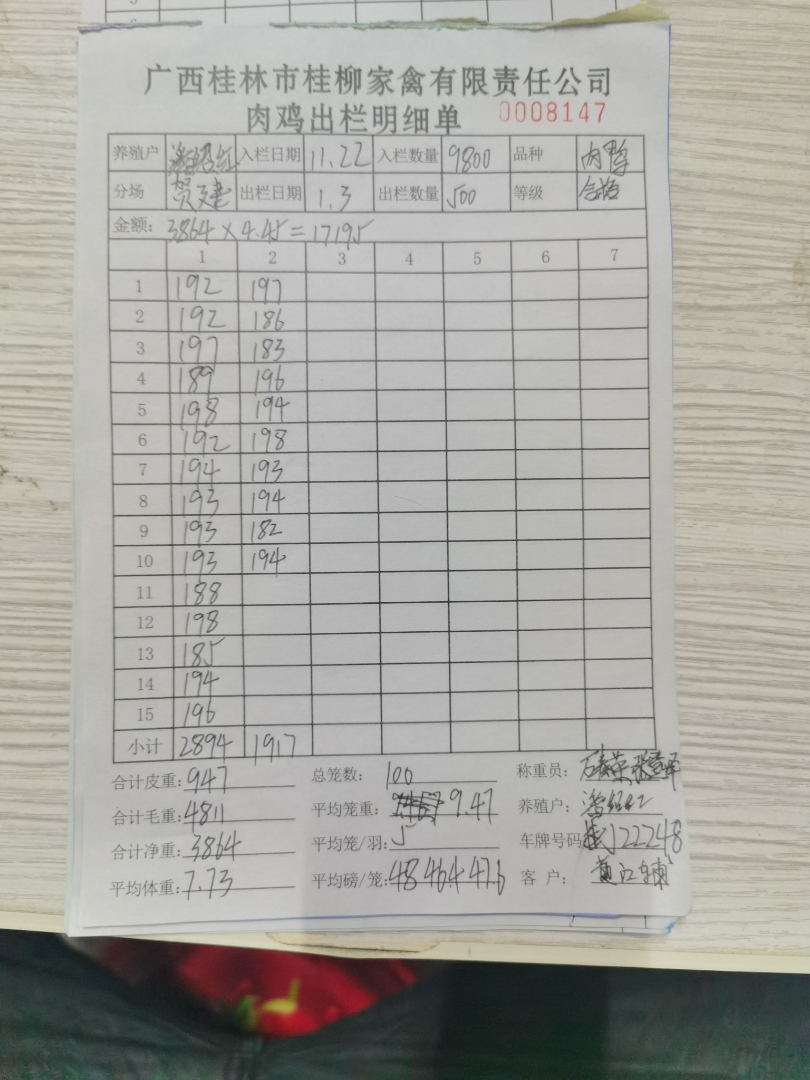 广西桂林市桂柳家禽有限责任公司
肉鸡出栏明细单 0008147
养殖户 潘绍红 入栏日期 11.22 入栏数量 9800 品种 肉鸭
分场 贺建 出栏日期 1.3 出栏数量 500 等级 合格
金额: 3864 × 4.45 = 17195
1 2 3 4 5 6 7
1 192 197
2 192 186
3 197 183
4 189 196
5 198 194
6 192 198
7 194 193
8 193 194
9 193 182
10 193 194
11 188
12 198
13 185
14 194
15 196
小计 2894 1917
合计皮重: 947 总笼数: 100 称重员:
合计毛重: 4811 平均笼重: 9.47 养殖户:
合计净重: 3864 平均笼/羽: 5 车牌号码 22248
平均体重: 7.73 平均磅/笼: 48 46.4 47.6 客 户: